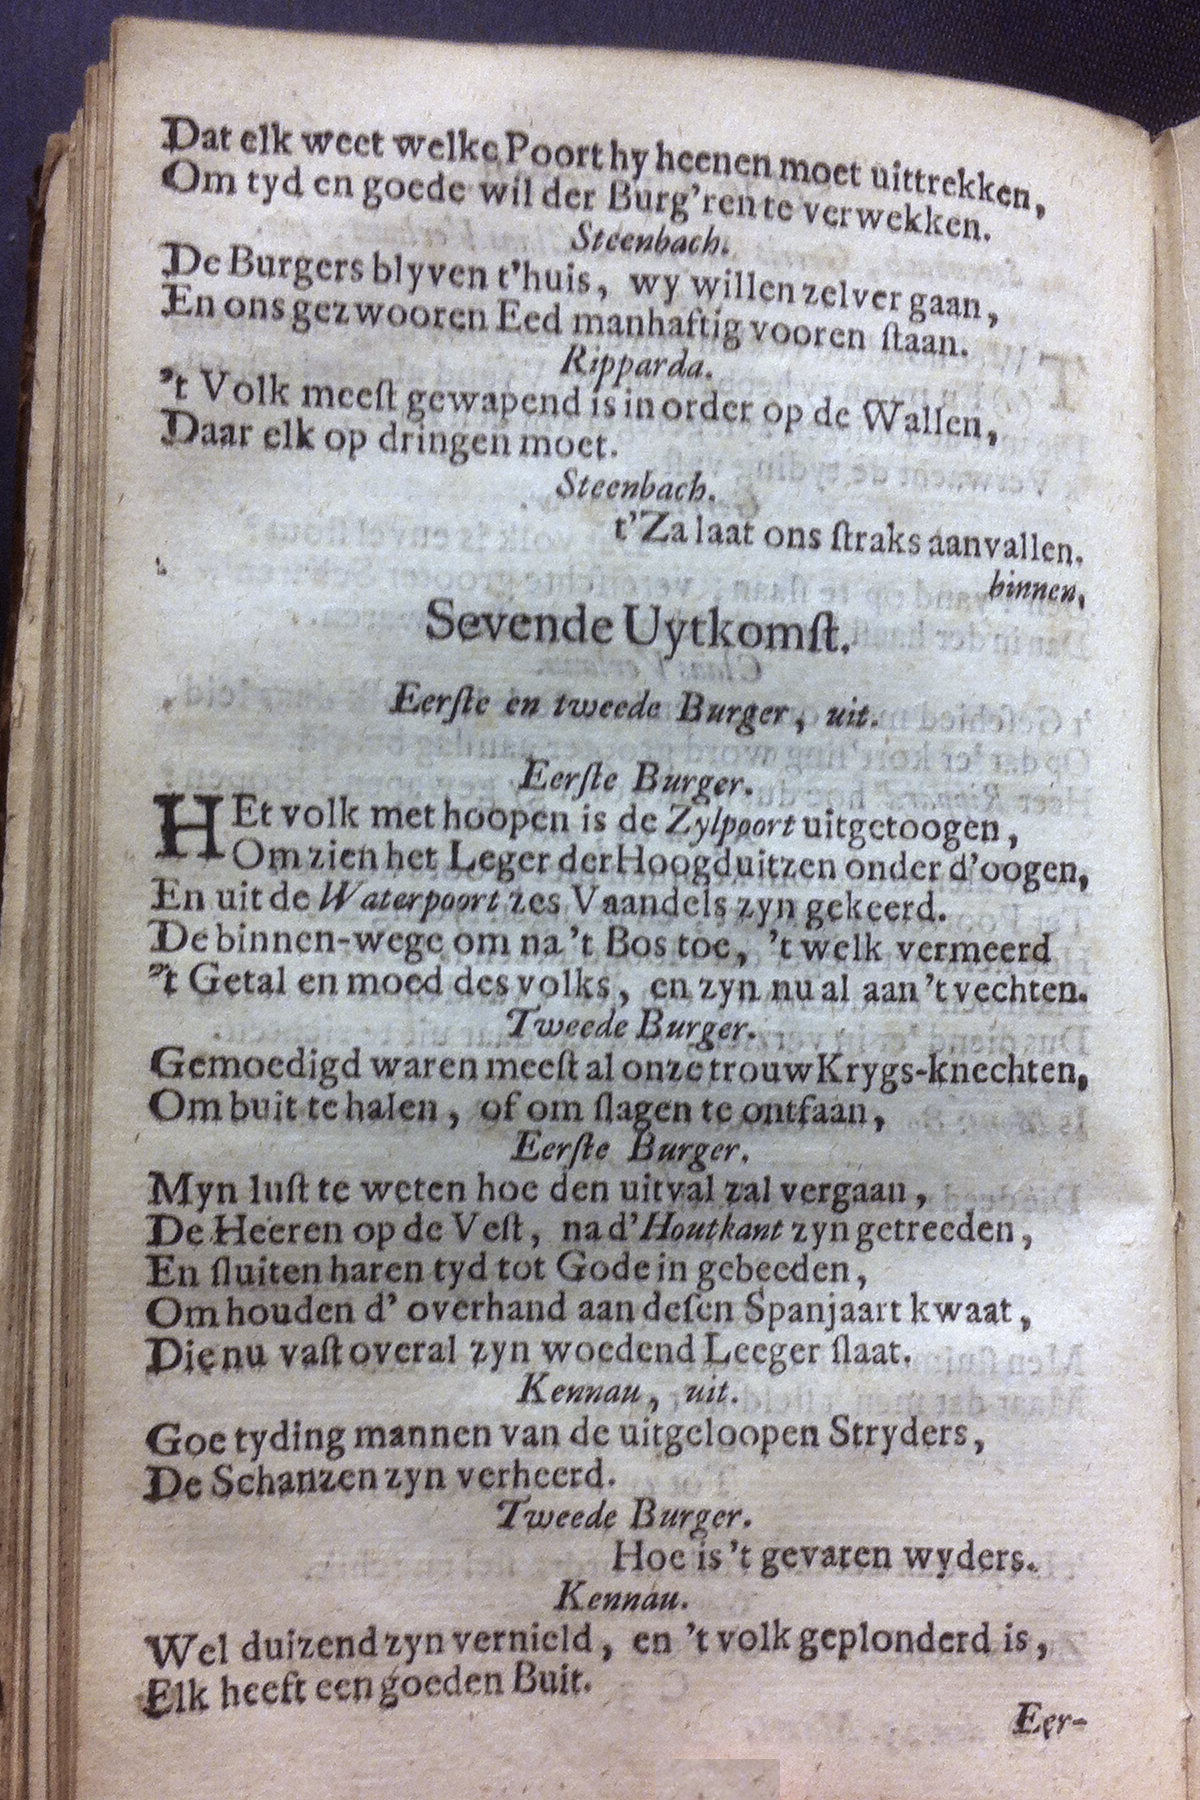 Dat elk weet welke Poort hy heenen moet uittrekken,
Om tyd en goede wil der Burg'ren te verwekken.
Steenbach.
De Burgers blyven t'huis, wy willen zelver gaan,
En ons gezwooren Eed manhaftig vooren ſtaan.
Ripparda.
't Volk meeſt gewapend is in order op de Wallen,
Daar elk op dringen moet.
Steenbach.
t'Za laat ons ſtraks aanvallen.
binnen.
Sevende Uytkomſt.
Eerſte en tweede Burger, uit.
Eerſte Burger.
HEt volk met hoopen is de Zylpoort uitgetoogen,
Om zien het Leger der Hoogduitzen onder d'oogen,
En uit de Waterpoort zes Vaandels zyn gekeerd.
De binnen-wege om na 't Bos toe, 't welk vermeerd
't Getal en moed des volks, en zyn nu al aan 't vechten.
Tweede Burger.
Gemoedigd waren meeſt al onze trouw Krygs-knechten,
Om buit te halen, of om ſlagen te ontfaan,
Eerſte Burger.
Myn luſt te weten hoe den uitval zal vergaan,
De Heeren op de Veſt, na d'Houtkant zyn getreeden,
En ſluiten haren tyd tot Gode in gebeeden,
Om houden d' overhand aan deſen Spanjaart kwaat,
Die nu vaſt overal zyn woedend Leeger ſlaat.
Kennau, uit.
Goe tyding mannen van de uitgeloopen Stryders,
De Schanzen zyn verheerd.
Tweede Burger.
Hoe is 't gevaren wyders.
Kennau.
Wel duizend zyn vernield, en 't volk geplonderd is,
Elk heeft een goeden Buit.
Eer-